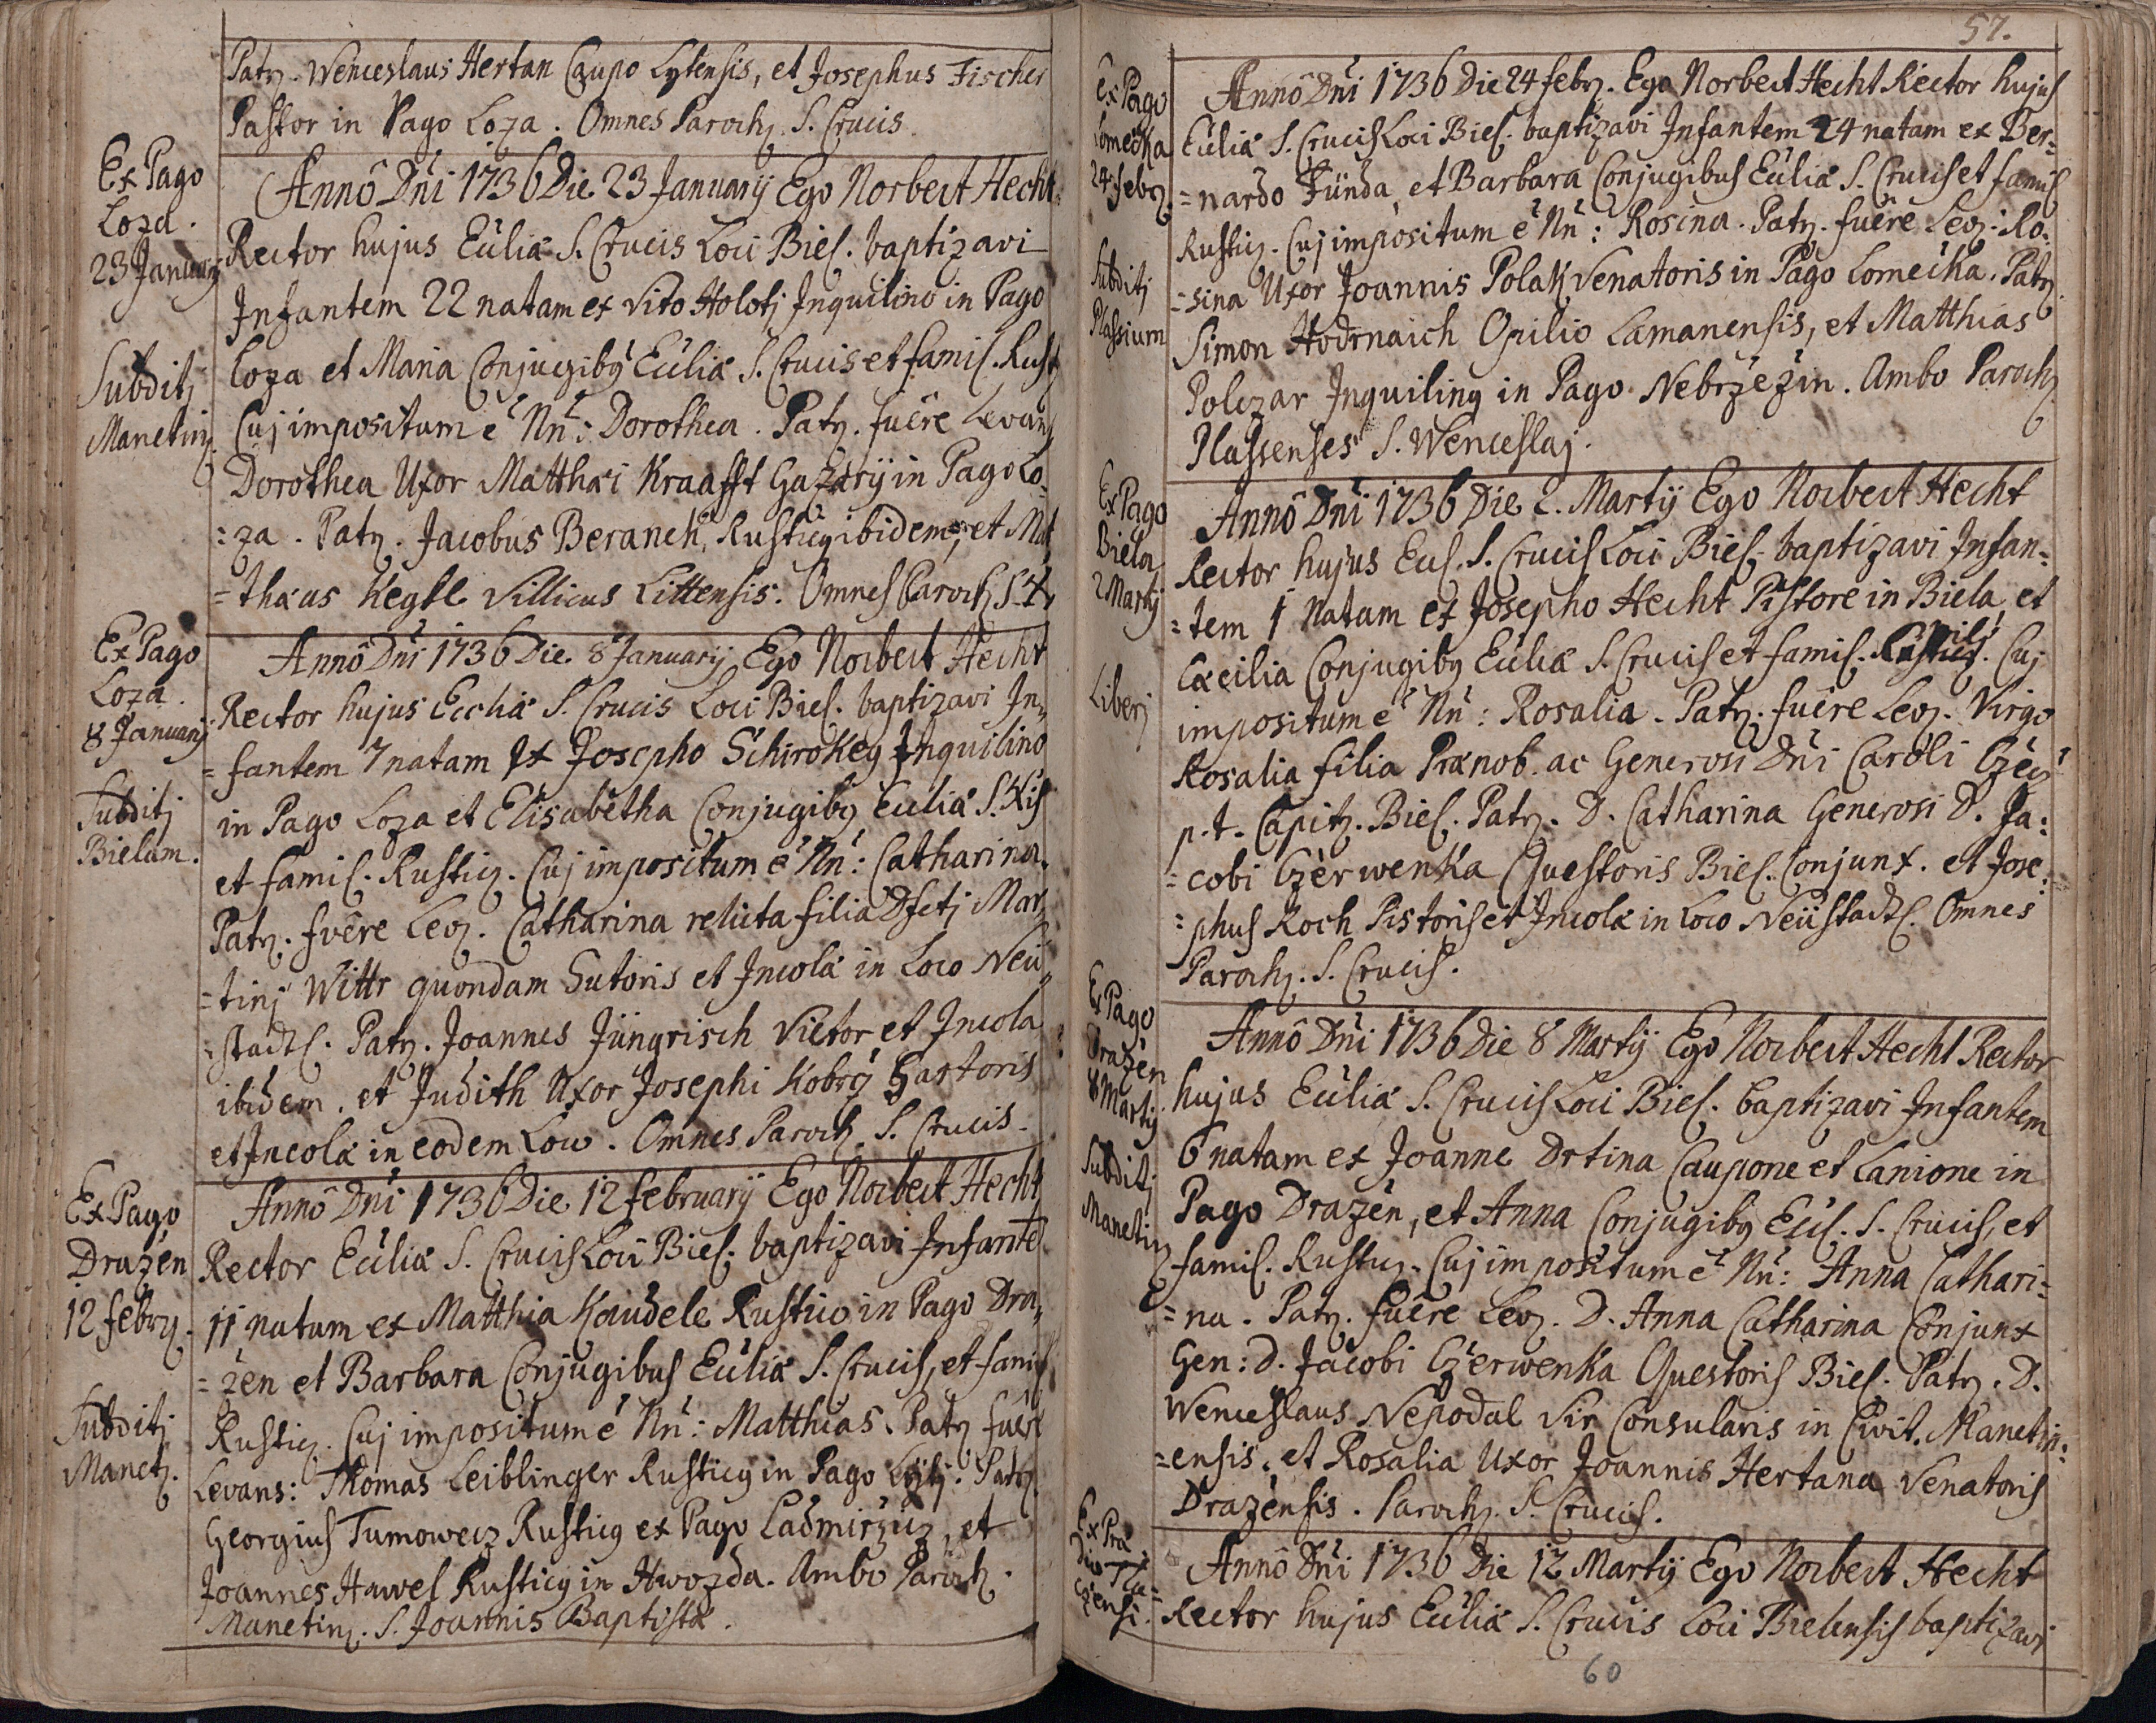 Patr. Wenceslaus Hertan Caupo Lytensis, et Josephus Fischer
Pastor in Pago Loza. Omnes Paroch. S. Crucis.
Ex Pago
Loza.
23 January
Subditj
Manetin.
Annô Dñi 1736 Die 23 Januarij Ego Norbert Hecht
Rector hujus Ecclia S. Crucis Loci Biel. baptizavi
Infantem 22 natam ex Vito Holotj Inquilino in Pago
Loza et Maria Conjugiby Ecclia S. Crucis et famil. Rust.
Cuj impositum ē Nñ: Dorothea. Patr. fuêre Levans
Dorothea Uxor Matthæi Kraafft Gazarij in Pago Lo:
:za. Patr. Jacobus Beranek, Rusticy ibidem, et Mat
=thæus Kegle Villicus Littensis. Omnes Paroch. S. +
Ex Pago
Loza.
8 Januarij
Subditj
Bielam.
Annô Dñi 1736 Die 8 Januarij Ego Norbert Hecht
Rector hujus Ecclia S. Crucis Loci Biel. baptizavi In,
=fantem 7 natam Ex Josepho Schirokey Inquilino
in Pago Loza et Elisabetha Conjugiby Ecclia S. Xis
et famil. Rustic. Cuj impositum ē Nñ: Catharina.
Patr. fuêre Lev. Catharina relicta filia Dfctj Mar,
=tinj Wittr quondam Sutoris et Incolæ in Loco Neü,
=stadtl. Patr. Joannes Jüngrisch Vietor et Incola
ibidem. et Judith Uxor Josephi Kobrcÿ Sartoris
et Incolæ in eodem Loco. Omnes Paroch. S. Crucis.
Ex Pago
Dražen
12 febr.
Subditj
Manet.
Annô Dñi 1736 Die 12 februarij Ego Norbert Hecht
Rector Ecclia S. Crucis Loci Biel. baptizavi Infantē
11 natum ex Matthia Kaudele Rustico in Pago Dra,
=žen et Barbara Conjugibus Ecclia S. Crucis, et famil
Rustic. Cuj impositum ē Nñ: Matthias. Patr. fuêre
Levans: Thomas Leiblinger Rusticy in Pago Lytj. Patr.
Georgius Tumowecz Rusticy ex Pago Ladmiržicz, et
Joannes Hawel Rusticy in Hwozda. Ambo Paroch.
Manetin. S. Joannis Baptistæ.
57.
Ex Pago
Lomecka
24 febr.
Subditj
Plassium
Annô Dñi 1736 Die 24 febr. Ego Norbert Hecht Rector hujus
Ecclia S. Crucis Loci Biel. baptizavi Infantem 24 natam ex Ber=
=nardo Fünda, et Barbara Conjugibus Ecclia S. Crucis et famil
Rustic. Cuj impositum ē Nñ: Rosina. Patr. fuêre Lev. Ro:
=sina Uxor Joannis Polak Venatoris in Pago Lomecka. Patr.
Simon Hodrnaich Opilio Lamanensis, et Matthias
Polczar Inquiliny in Pago Nebržežin. Ambo Paroch.
Plassenses S. Wenceslaj.
Ex Pago
Biela
2 Martij
Liberj
Annô Dñi 1736 Die 2. Martij Ego Norbert Hecht
Rector hujus Eccl. S. Crucis Loci Biel. baptizavi Infan=
=tem 1 natam ex Josepho Hecht Pistore in Biela, et
Cæcilia Conjugiby Ecclia S. Crucis et famil. Cuj
impositum ē Nñ: Rosalia. Patr. fuêre Lev. Virgo
Rosalia filia Prænob. ac Generosi Dñi Caroli
p.t. Capit. Biel. Patr. D. Catharina Generosi D. Ja:
=cobi Czerwenka Questoris Biel. Conjunx. et Jose:
=phus Koch Pistoris et Incolæ in Loco Neüstadtl. Omnes
Paroch. S. Crucis.
Ex Pago
Dražen
8 Martij
Subditj
Manetin
Annô Dñi 1736 Die 8 Martij Ego Norbert Hecht Rector
hujus Ecclia S. Crucis Loci Biel. baptizavi Infantem
6 natam ex Joanne Drtina Caupone et Lanione in
Pago Dražen, et Anna Conjugiby Eccl. S. Crucis, et
famil. Rustic. Cuj impositum ē Nñ: Anna Cathari=
=na. Patr. fuêre Lev. D. Anna Catharina Conjunx
Gen: D. Jacobi Czerwenka Questoris Biel. Patr. D.
Wenceslaus Nepodal Vir Consularis in Civit. Manetin:
=ensis. et Rosalia Uxor Joannis Hertana Venatoris
Dražensis. Paroch. S. Crucis.
Ex Præ
dio Pla=
czensi.
Annô Dñi 1736 Die 12 Martij Ego Norbert Hecht
Rector hujus Ecclia S. Crucis Loci Bielensis baptizavi
60